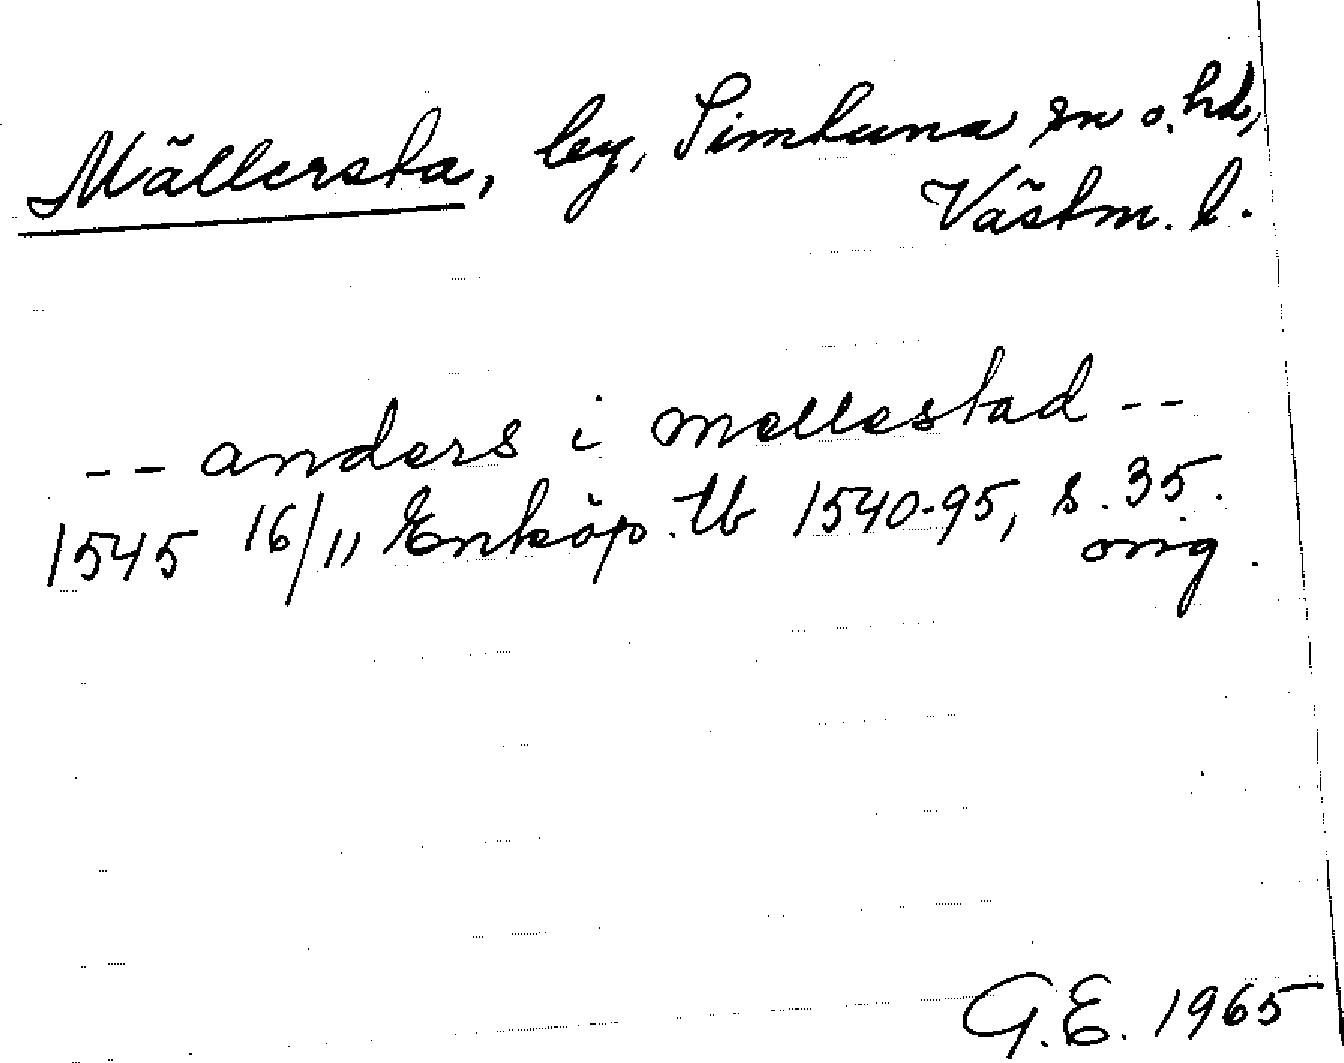 Mällersta, by, Simtuna sn o. hd,
Västm. l.
-- anders i mellestad --
1545 16/11 Enköp. tb 1540-95, s. 35.
orig.
G.E. 1965